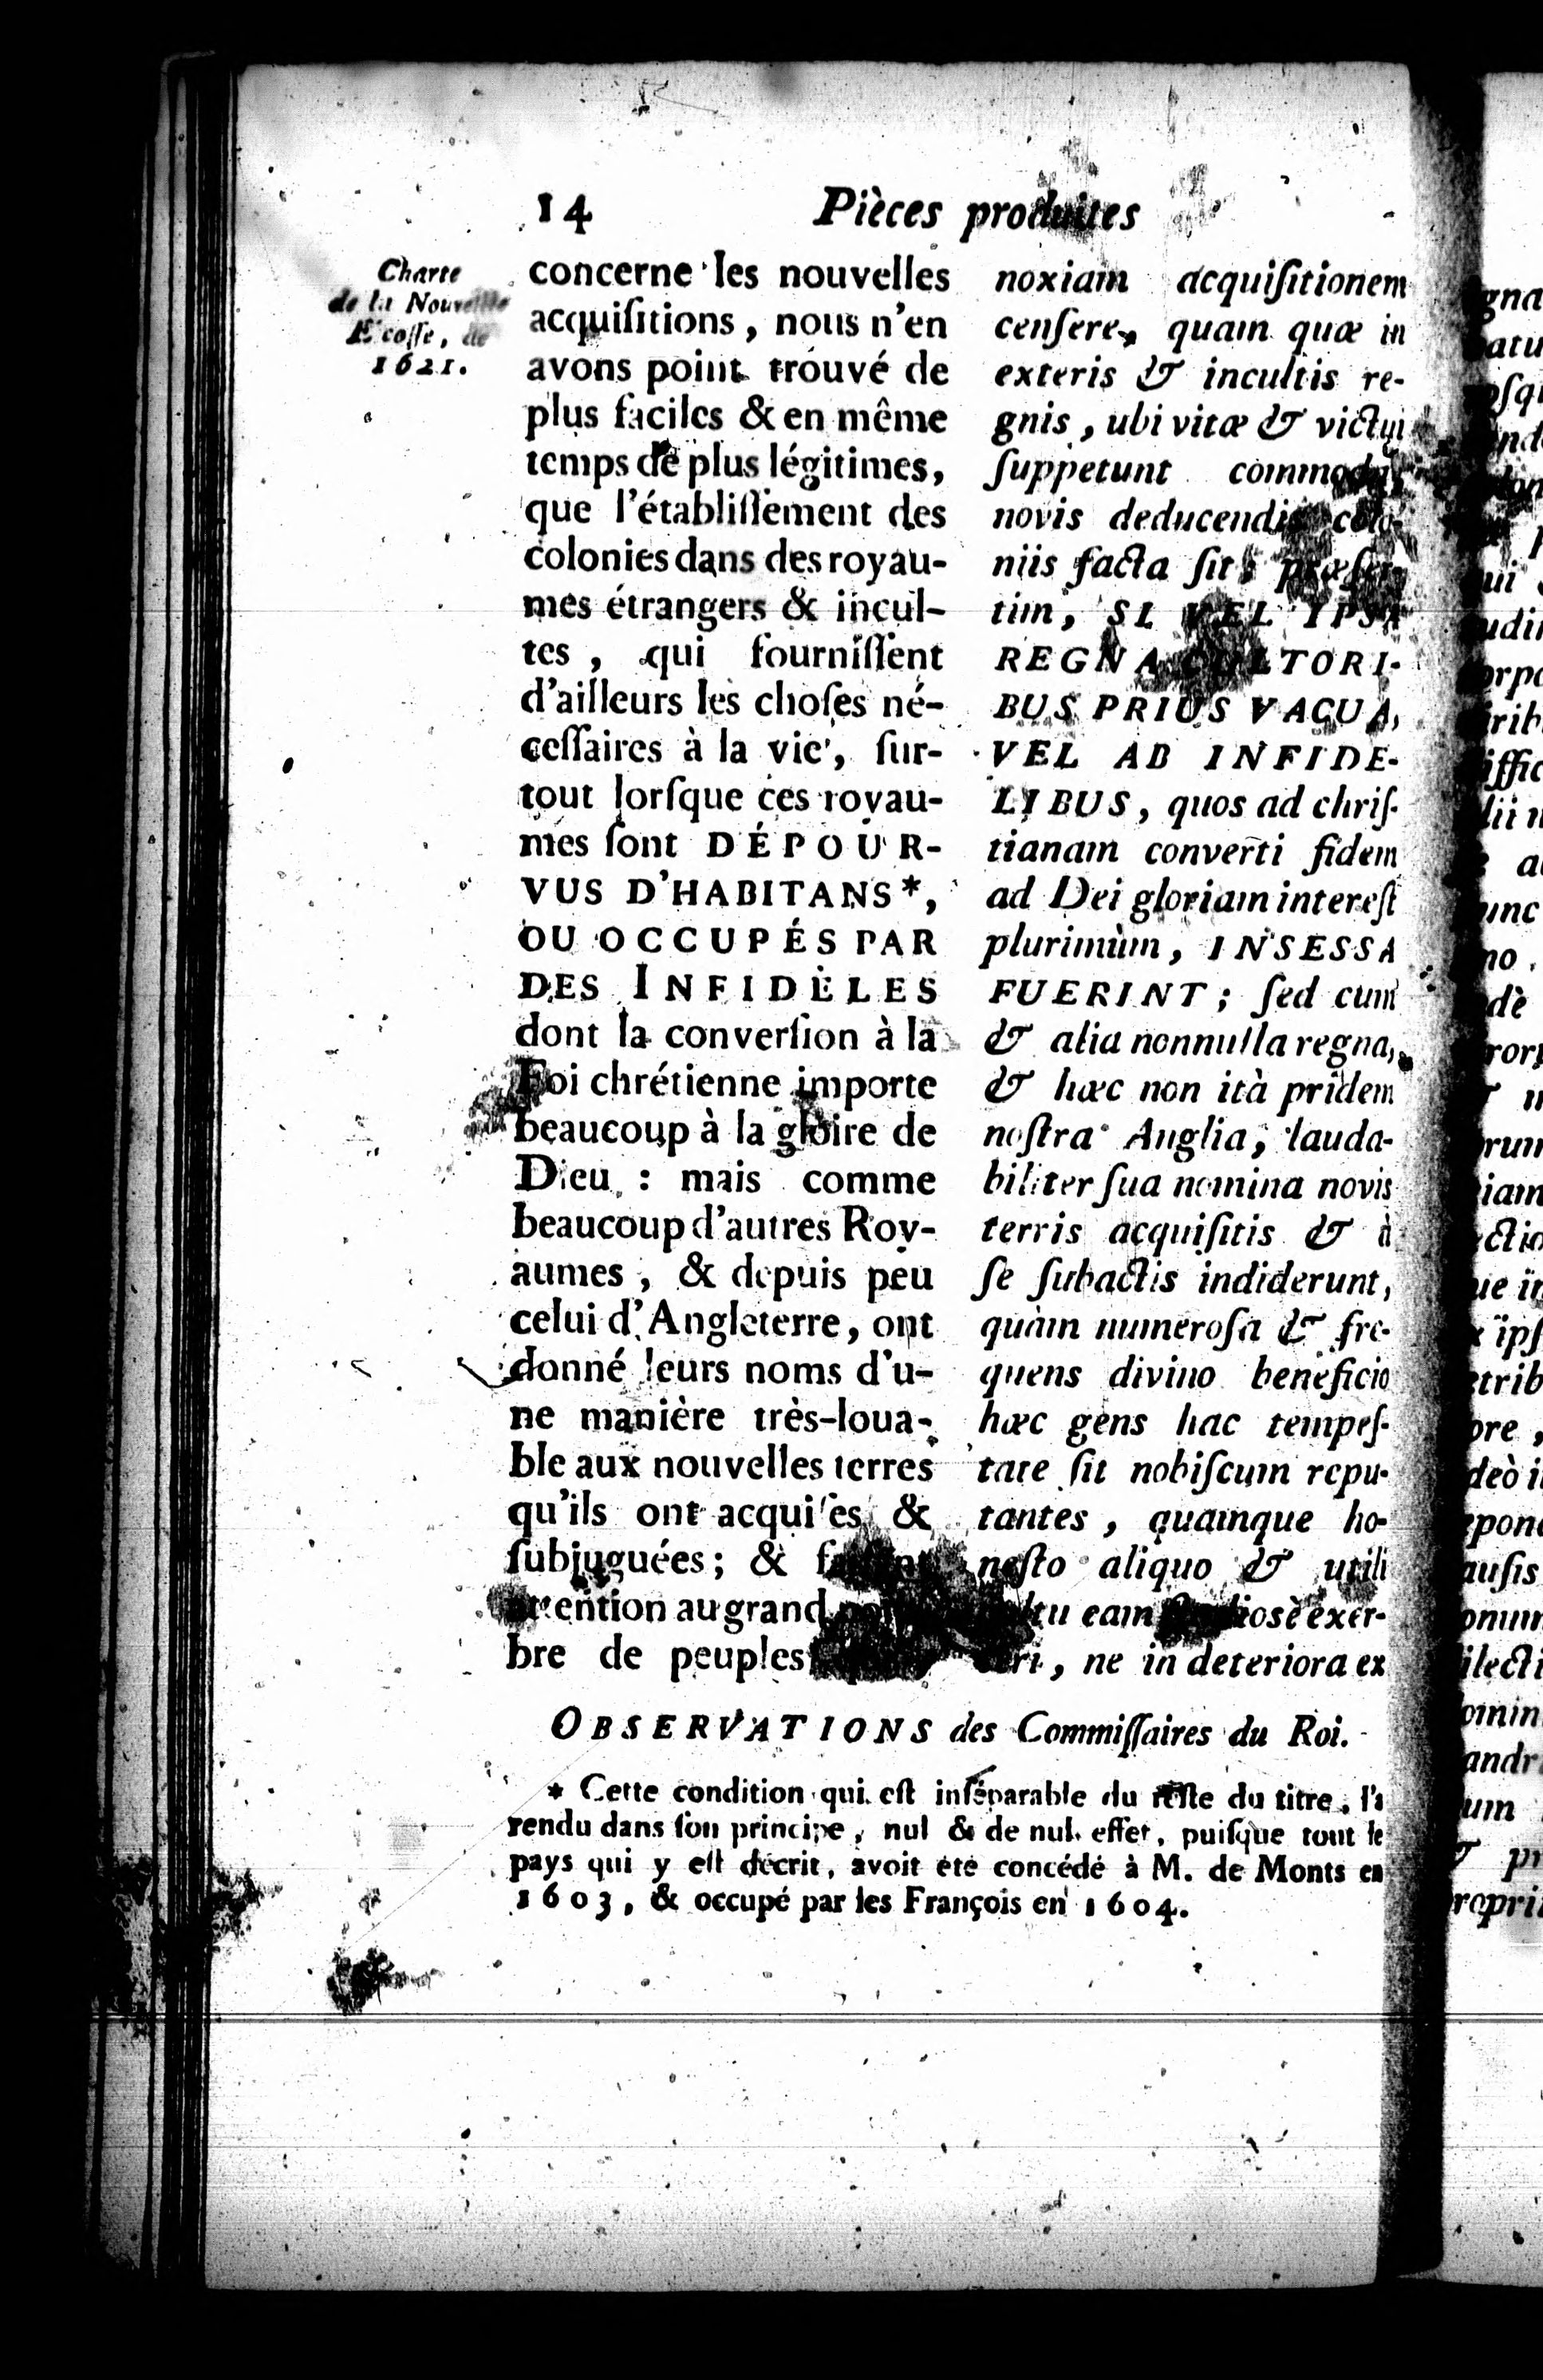 14 Pièces produites
Charte
de la Nouvelle
Ecosse, de
1621.
concerne les nouvelles
acquiſitions, nous n'en
avons point trouvé de
plus faciles & en même
temps de plus légitimes,
que l'établiſſement des
colonies dans des royau-
mes étrangers & incul-
tes, qui fourniſſent
d'ailleurs les choſes né-
ceſſaires à la vie, ſur-
tout lorſque ces royau-
mes ſont DÉPOUR-
VUS D'HABITANS*,
OU OCCUPÉS PAR
DES INFIDÈLES
dont la converſion à la
Foi chrétienne importe
beaucoup à la gloire de
Dieu : mais comme
beaucoup d'autres Roy-
aumes, & depuis peu
celui d'Angleterre, ont
donné leurs noms d'u-
ne manière très-loua-
ble aux nouvelles terres
qu'ils ont acquiſes &
ſubjuguées; &
attention au grand
bre de peuples
noxiam acquiſitionem
cenſere, quam quæ in
exteris & incultis re-
gnis, ubi vitæ & victui
ſuppetunt commoda,
novis deducendis colo-
niis facta ſit; præſer-
tim, SI VEL IPSA
REGNA CULTORI-
BUS PRIUS VACUA,
VEL AB INFIDE-
LIBUS, quos ad chriſ-
tianam converti fidem
ad Dei gloriam intereſt
plurimùm, INSESSA
FUERINT; ſed cum
& alia nonnulla regna,
& hæc non ità pridem
noſtra Anglia, lauda-
biliter ſua nomina novis
terris acquiſitis & à
ſe ſubactis indiderunt,
quàm numeroſa & fre-
quens divino beneficio
hæc gens hac tempeſ-
tate ſit nobiſcum repu-
tantes, quamque ho-
neſto aliquo & utili
eam ſtudiosè exer-
ceri, ne in deteriora ex
OBSERVATIONS des Commiſſaires du Roi.
* Cette condition qui eſt inſéparable du reſte du titre, l'a
rendu dans ſon principe, nul & de nul effet, puiſque tout le
pays qui y eſt décrit, avoit été concédé à M. de Monts en
1603, & occupé par les François en 1604.